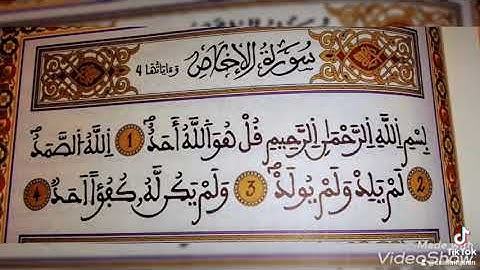 سُورَةُ الإِخْلَاصِ وَءَايَاتُهَا 4
بِسْمِ اِللَّهِ اِلرَّحْمَٰنِ اِلرَّحِيمِ قُلْ هُوَ اَللَّهُ أَحَدٌ 1 اَللَّهُ اُلصَّمَدُ
2 لَمْ يَلِدْ وَلَمْ يُولَدْ 3 وَلَمْ يَكُن لَّهُ كُفُؤاً اَحَدٌ 4
TikTok
Made with
VideoShow